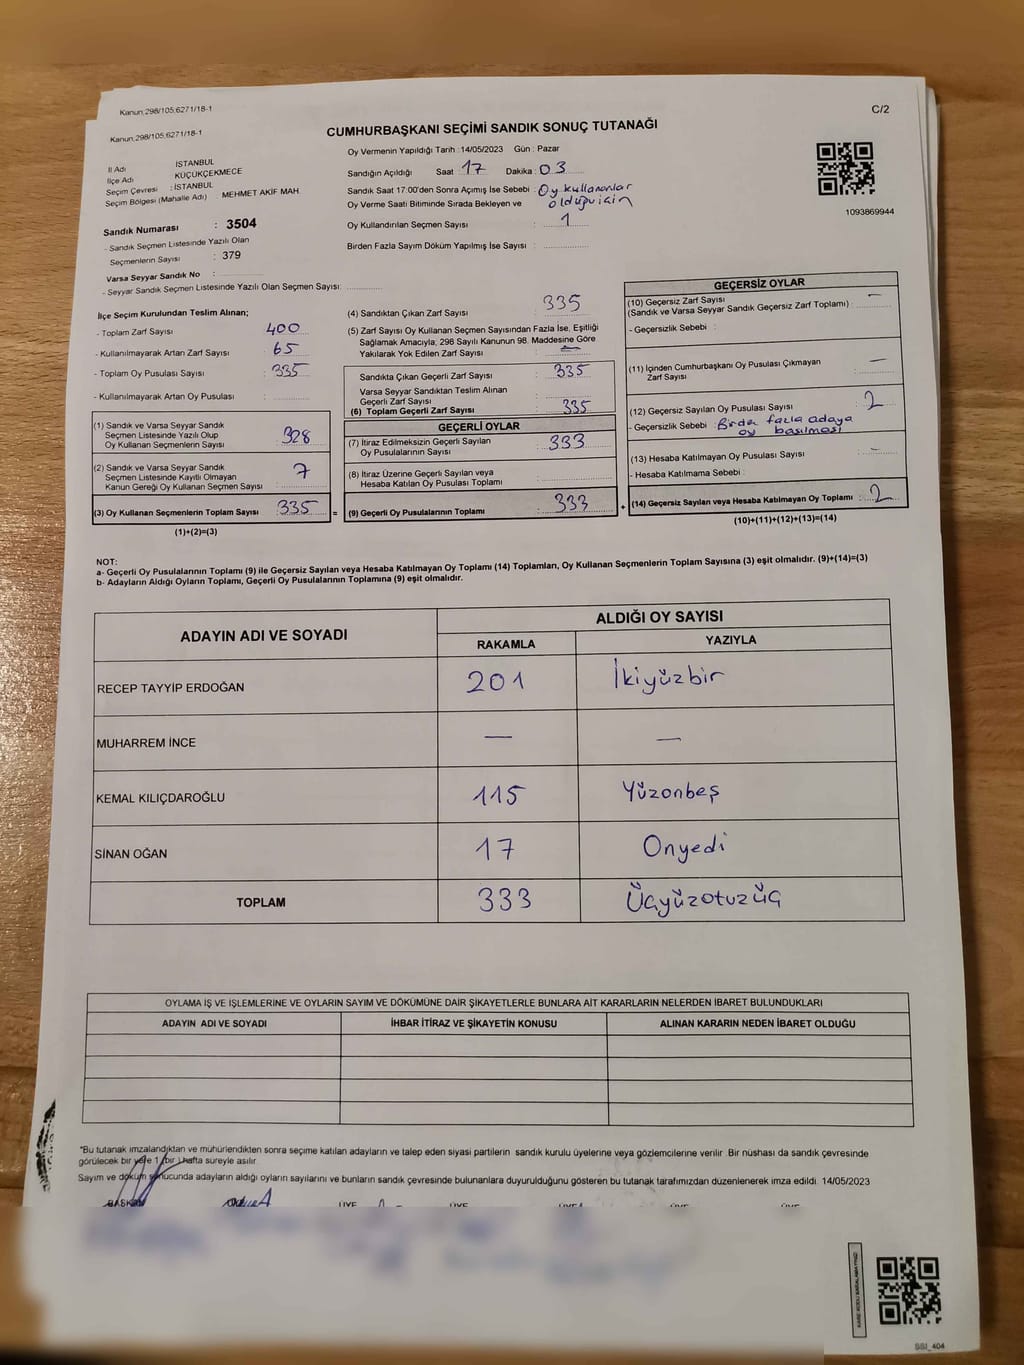 Kanun;298/105;6271/18-1
Kanun;298/105;6271/18-1
C/2
CUMHURBAŞKANI SEÇİMİ SANDIK SONUÇ TUTANAĞI
Oy Vermenin Yapıldığı Tarih :14/05/2023 Gün : Pazar
İl Adı İSTANBUL
İlçe Adı KÜÇÜKÇEKMECE
Seçim Çevresi : İSTANBUL
Seçim Bölgesi (Mahalle Adı) : MEHMET AKİF MAH.
Sandığın Açıldığı Saat : 17 Dakika : 03
Sandık Saat 17:00'den Sonra Açımış İse Sebebi : Oy kullananlar
Oy Verme Saati Bitiminde Sırada Bekleyen ve olduğu için
Oy Kullandırılan Seçmen Sayısı : 1
Birden Fazla Sayım Döküm Yapılmış İse Sayısı :
1093869944
Sandık Numarası : 3504
- Sandık Seçmen Listesinde Yazılı Olan
Seçmenlerin Sayısı : 379
Varsa Seyyar Sandık No :
- Seyyar Sandık Seçmen Listesinde Yazılı Olan Seçmen Sayısı:
İlçe Seçim Kurulundan Teslim Alınan;
- Toplam Zarf Sayısı : 400
- Kullanılmayarak Artan Zarf Sayısı : 65
- Toplam Oy Pusulası Sayısı : 335
- Kullanılmayarak Artan Oy Pusulası :
(1) Sandık ve Varsa Seyyar Sandık
Seçmen Listesinde Yazılı Olup
Oy Kullanan Seçmenlerin Sayısı : 328
(2) Sandık ve Varsa Seyyar Sandık
Seçmen Listesinde Kayıtlı Olmayan
Kanun Gereği Oy Kullanan Seçmen Sayısı : 7
(3) Oy Kullanan Seçmenlerin Toplam Sayısı : 335
(1)+(2)=(3)
=
(4) Sandıktan Çıkan Zarf Sayısı : 335
(5) Zarf Sayısı Oy Kullanan Seçmen Sayısından Fazla İse, Eşitliği
Sağlamak Amacıyla, 298 Sayılı Kanunun 98. Maddesine Göre
Yakılarak Yok Edilen Zarf Sayısı : —
Sandıkta Çıkan Geçerli Zarf Sayısı : 335
Varsa Seyyar Sandıktan Teslim Alınan
Geçerli Zarf Sayısı :
(6) Toplam Geçerli Zarf Sayısı : 335
GEÇERLİ OYLAR
(7) İtiraz Edilmeksizin Geçerli Sayılan
Oy Pusulalarının Sayısı : 333
(8) İtiraz Üzerine Geçerli Sayılan veya
Hesaba Katılan Oy Pusulası Toplamı :
(9) Geçerli Oy Pusulalarının Toplamı : 333
+
GEÇERSİZ OYLAR
(10) Geçersiz Zarf Sayısı
(Sandık ve Varsa Seyyar Sandık Geçersiz Zarf Toplamı) : —
- Geçersizlik Sebebi :
(11) İçinden Cumhurbaşkanı Oy Pusulası Çıkmayan
Zarf Sayısı : —
(12) Geçersiz Sayılan Oy Pusulası Sayısı : 2
- Geçersizlik Sebebi : Birden fazla adaya
oy basılması
(13) Hesaba Katılmayan Oy Pusulası Sayısı : —
- Hesaba Katılmama Sebebi :
(14) Geçersiz Sayılan veya Hesaba Katılmayan Oy Toplamı : 2
(10)+(11)+(12)+(13)=(14)
NOT:
a- Geçerli Oy Pusulalarının Toplamı (9) ile Geçersiz Sayılan veya Hesaba Katılmayan Oy Toplamı (14) Toplamları, Oy Kullanan Seçmenlerin Toplam Sayısına (3) eşit olmalıdır. (9)+(14)=(3)
b- Adayların Aldığı Oyların Toplamı, Geçerli Oy Pusulalarının Toplamına (9) eşit olmalıdır.
ADAYIN ADI VE SOYADI ALDIĞI OY SAYISI
RAKAMLA YAZIYLA
RECEP TAYYİP ERDOĞAN 201 İkiyüzbir
MUHARREM İNCE — —
KEMAL KILIÇDAROĞLU 115 Yüzonbeş
SİNAN OĞAN 17 Onyedi
TOPLAM 333 Üçyüzotuzüç
OYLAMA İŞ VE İŞLEMLERİNE VE OYLARIN SAYIM VE DÖKÜMÜNE DAİR ŞİKAYETLERLE BUNLARA AİT KARARLARIN NELERDEN İBARET BULUNDUKLARI
ADAYIN ADI VE SOYADI İHBAR İTİRAZ VE ŞİKAYETİN KONUSU ALINAN KARARIN NEDEN İBARET OLDUĞU
*Bu tutanak imzalandıktan ve mühürlendikten sonra seçime katılan adayların ve talep eden siyasi partilerin sandık kurulu üyelerine veya gözlemcilerine verilir. Bir nüshası da sandık çevresinde
görülecek bir yere 1 (bir) hafta süreyle asılır.
Sayım ve döküm sonucunda adayların aldığı oyların sayılarını ve bunların sandık çevresinde bulunanlara duyurulduğunu gösteren bu tutanak tarafımızdan düzenlenerek imza edildi. 14/05/2023
BAŞKAN ÜYE ÜYE ÜYE ÜYE ÜYE
SSI_404